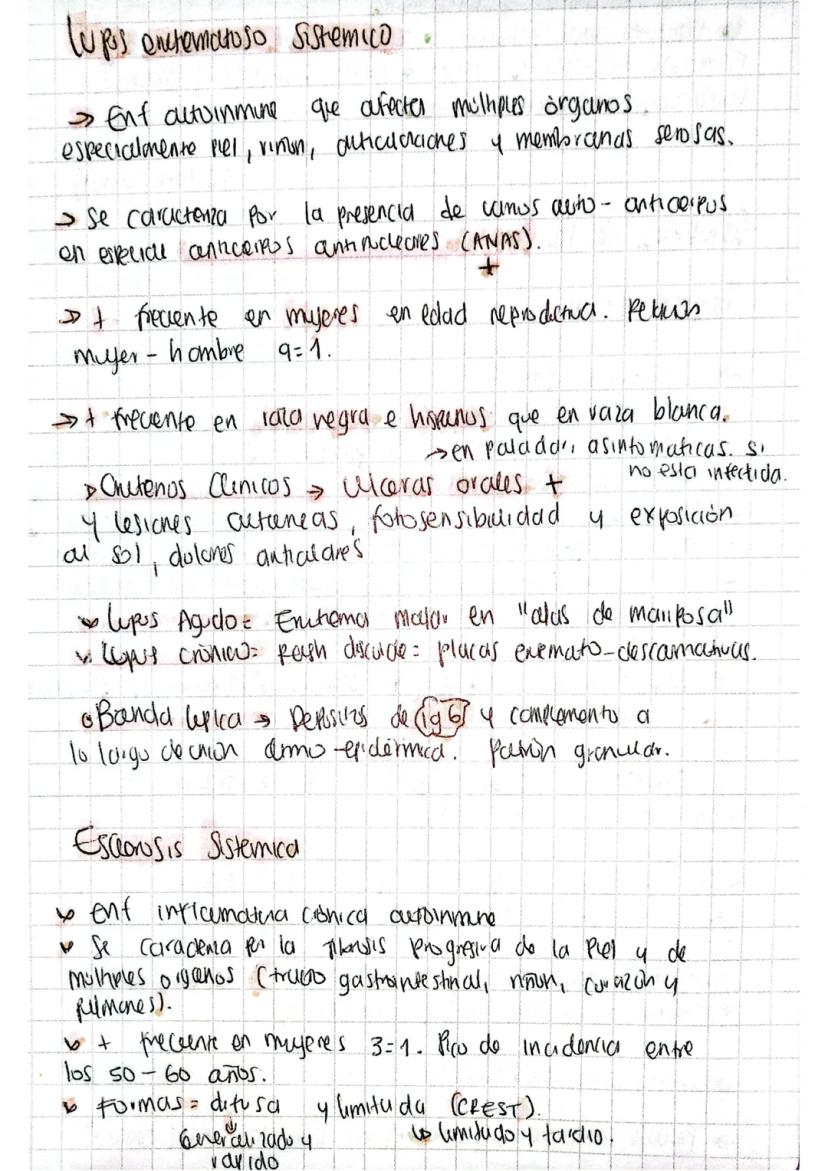 Lupus eritematoso Sistemico
→ Enf autoinmune que afecta múltiples órganos
especialmente piel, riñon, articulaciones y membranas serosas.
→ Se caracteriza por la presencia de varios auto-anticuerpos
en especial anticuerpos antinucleares (ANAS).
+
→ + frecuente en mujeres en edad reproductiva. Relación
mujer - hombre 9=1.
→ + frecuente en raza negra e hispanos que en raza blanca.
→ en paladar, asintomaticas. si
no esta infectida.
Criterios Clinicos → Ulceras orales +
y lesiones cutaneas, fotosensibilidad y exposición
al sol, dolores articulares
Lupus Agudo= Eritema malar en "alas de mariposa"
Lupus crónico= Rash discoide= placas eritemato-descamativas.
Banda lupica → Depositos de IgG y complemento a
lo largo de unión dermo-epidérmica. Patrón granular.
Esclerosis Sistemica
Enf inflamatoria crónica autoinmune
Se caracteriza por la fibrosis progresiva de la Piel y de
multiples organos (tracto gastrointestinal, riñon, corazón y
pulmones).
+ frecuente en mujeres 3=1. Pico de incidencia entre
los 50-60 años.
Formas= difusa y limitada (CREST).
Generalizado y → limitado y tardio.
rapido